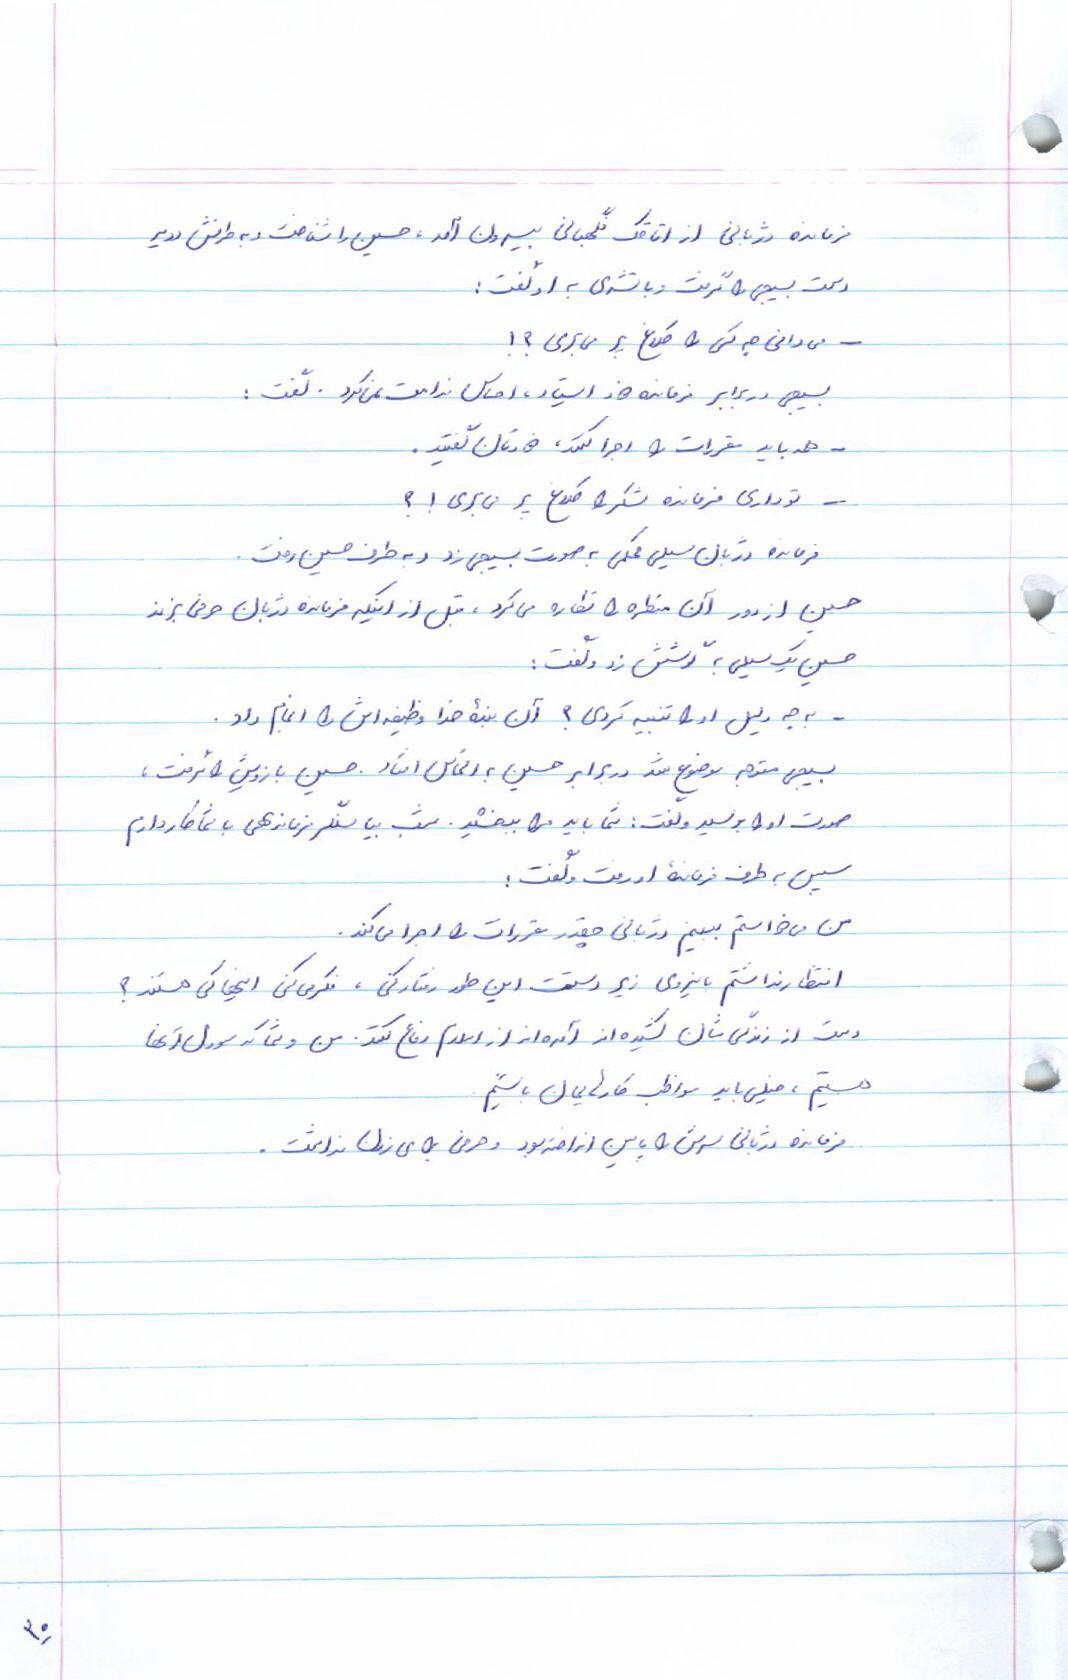 فرمانده دژبانی از اتاقک نگهبانی بیرون آمد، حسین را شناخت و به طرفش دوید
دست بسیجی را گرفت و با تشدی به او گفت:
– می دانی چه کسی را کلاغ پر می بری ؟!
بسیجی در برابر فرمانده خود ایستاد، احساس ندامت نمی کرد. گفت:
– همه باید مقررات را اجرا کنند، خودتان گفتید.
– تو داری فرمانده لشکر را کلاغ پر می بری !؟
فرمانده دژبان سیلی محکمی به صورت بسیجی زد و به طرف حسین رفت.
حسین از دور آن منظره را نظاره می کرد، قبل از اینکه فرمانده دژبان حرفی بزند
حسین یک سیلی به گوشش زد و گفت:
– به چه دلیل او را تنبیه کردی ؟ آن بنده خدا وظیفه اش را انجام داد.
بسیجی متوجه موضوع شد در برابر حسین به التماس افتاد. حسین بازویش را گرفت،
صورت او را بوسید و گفت: شما باید مرا ببخشید. شب بیا سنگر فرماندهی با شما کار دارم
سپس به طرف فرماندۀ او رفت و گفت:
من می خواستم ببینم دژبانی چقدر مقررات را اجرا می کند.
انتظار نداشتم با نیروی زیر دستت این طور رفتار کنی، فکر می کنی اینها کی هستند ؟
دست از زندگی شان کشیده اند آمده اند از اسلام دفاع کنند. من و شما که مسوول آنها
هستیم، خیلی باید مواظب کارهایمان باشیم
فرمانده دژبانی سرش را پایین انداخته بود و حرفی برای زدن نداشت.
۳۰